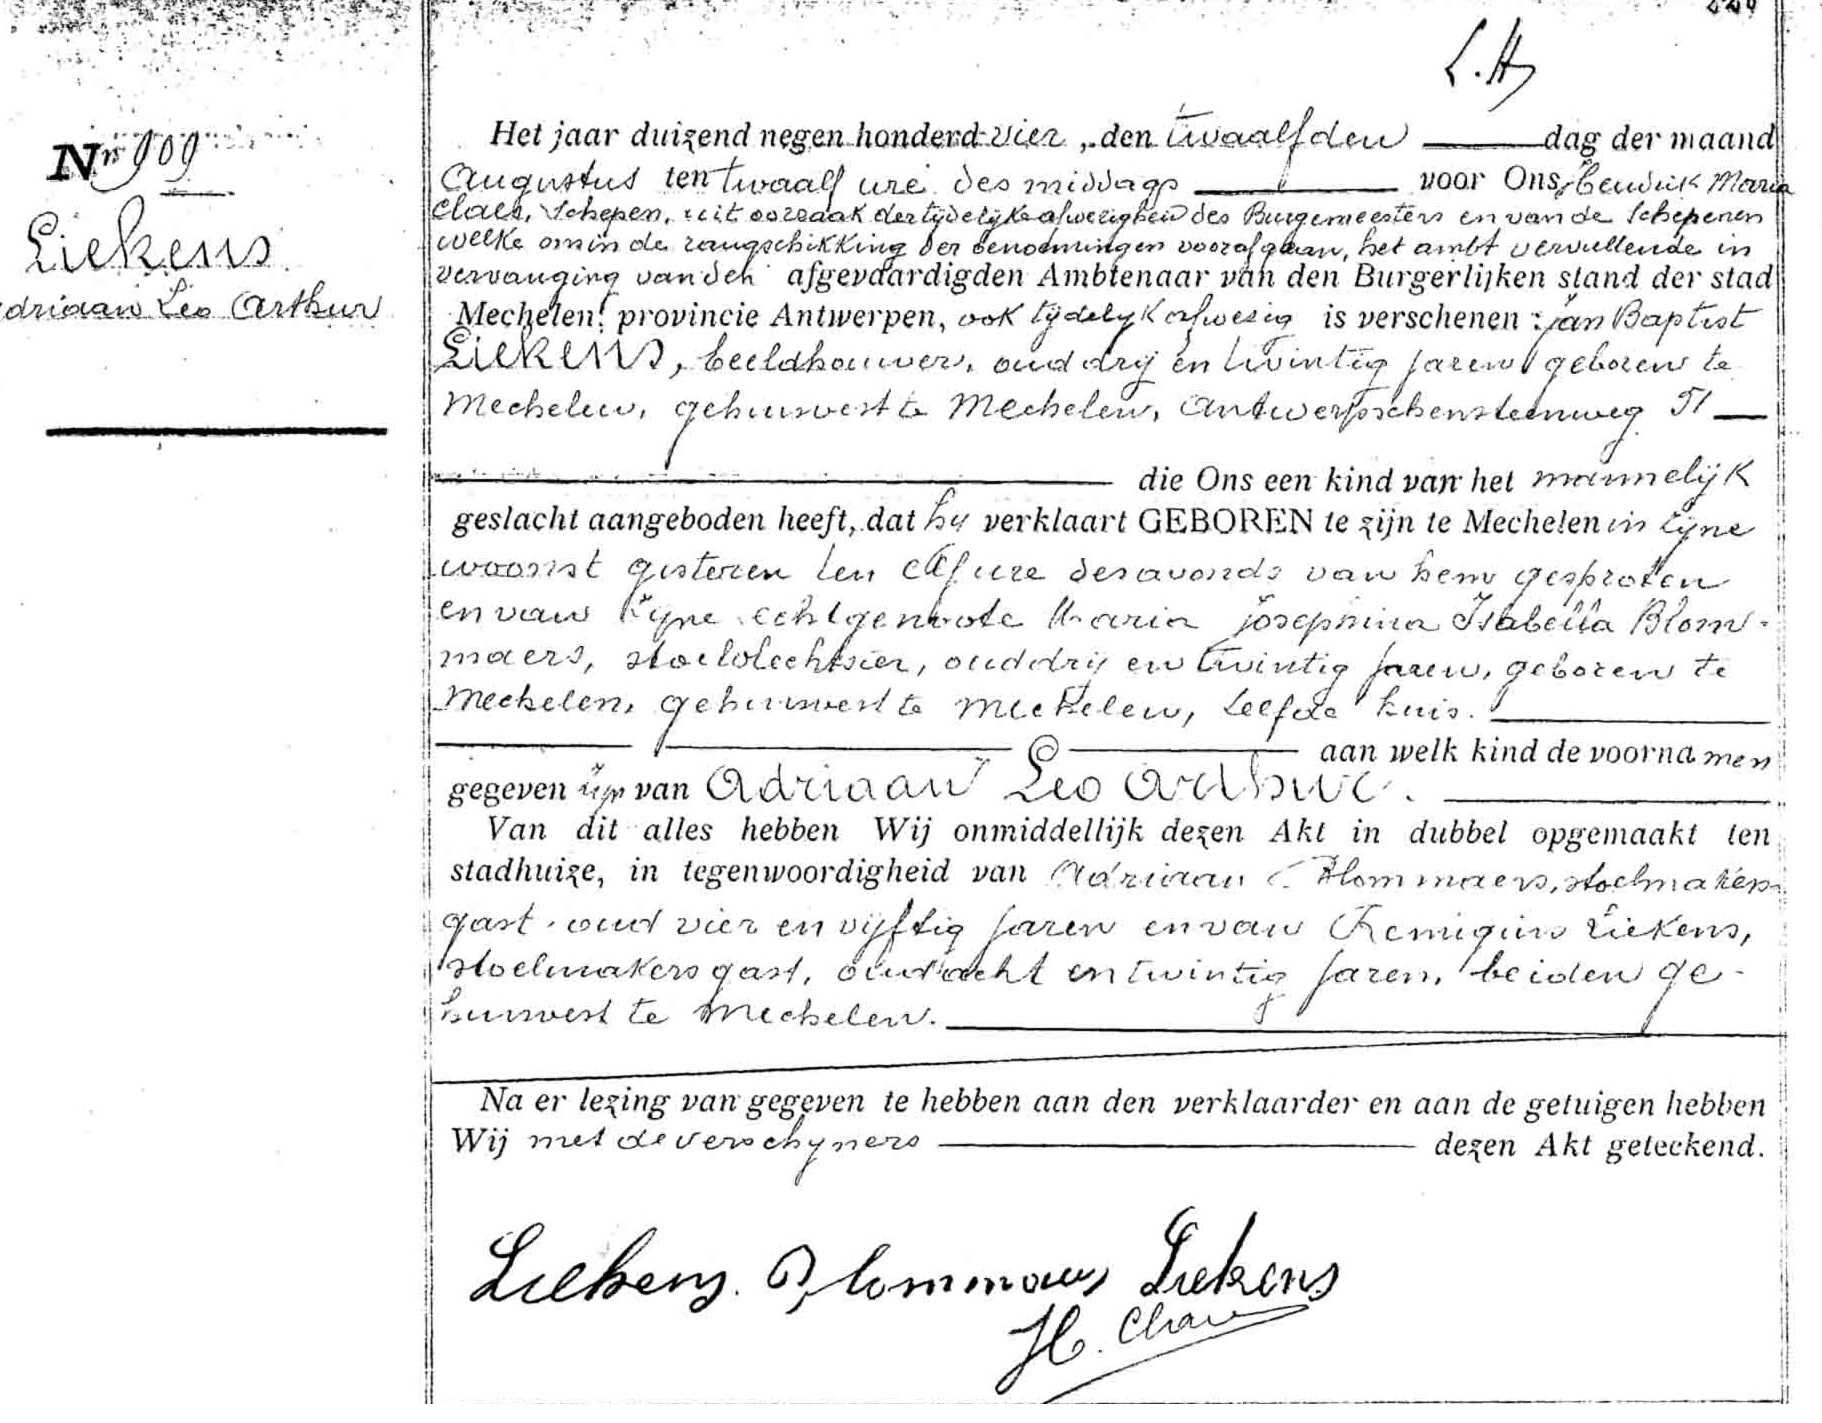 L. H
Nr 909
Liekens
Adriaan Leo Arthur
Het jaar duizend negen honderd vier, den twaalfden dag der maand
Augustus ten twaalf ure des middags voor Ons, Hendrik Maria
Claes, Schepen, uit oorzaak der tijdelijke afwezigheid des Burgemeesters en van de Schepenen
welke ons in de rangschikking der benoemingen voorafgaan, het ambt vervullende in
vervanging van den afgevaardigden Ambtenaar van den Burgerlijken stand der stad
Mechelen, provincie Antwerpen, ook tijdelijk afwezig is verschenen: Jan Baptist
Liekens, beeldhouwer, oud drij en twintig jaren geboren te
Mechelen, gehuisvest te Mechelen, Antwerpschensteenweg 51
die Ons een kind van het mannelijk
geslacht aangeboden heeft, dat hij verklaart GEBOREN te zijn te Mechelen in zijne
woonst gisteren ten elf ure des avonds van hem gesproten
en van zijne echtgenoote Maria Josephina Isabella Blom-
maers, stoelvlechtster, oud drij en twintig jaren, geboren te
Mechelen, gehuisvest te Mechelen, zelfde huis.
aan welk kind de voornamen
gegeven zijn van Adriaan Leo Arthur.
Van dit alles hebben Wij onmiddellijk dezen Akt in dubbel opgemaakt ten
stadhuize, in tegenwoordigheid van Adriaan Blommaers, stoelmakers-
gast, oud vier en vijftig jaren en van Remigius Liekens,
stoelmakersgast, oud acht en twintig jaren, beiden ge-
huisvest te Mechelen.
Na er lezing van gegeven te hebben aan den verklaarder en aan de getuigen hebben
Wij met de verschijners dezen Akt geteekend.
Liekens. Blommaers Liekens
H. Claes